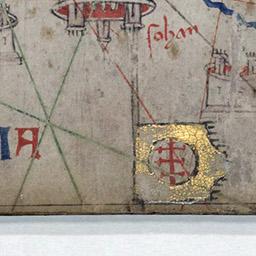 sohan
IA